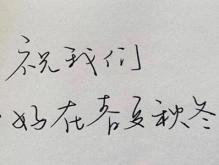 祝我们
好在春夏秋冬